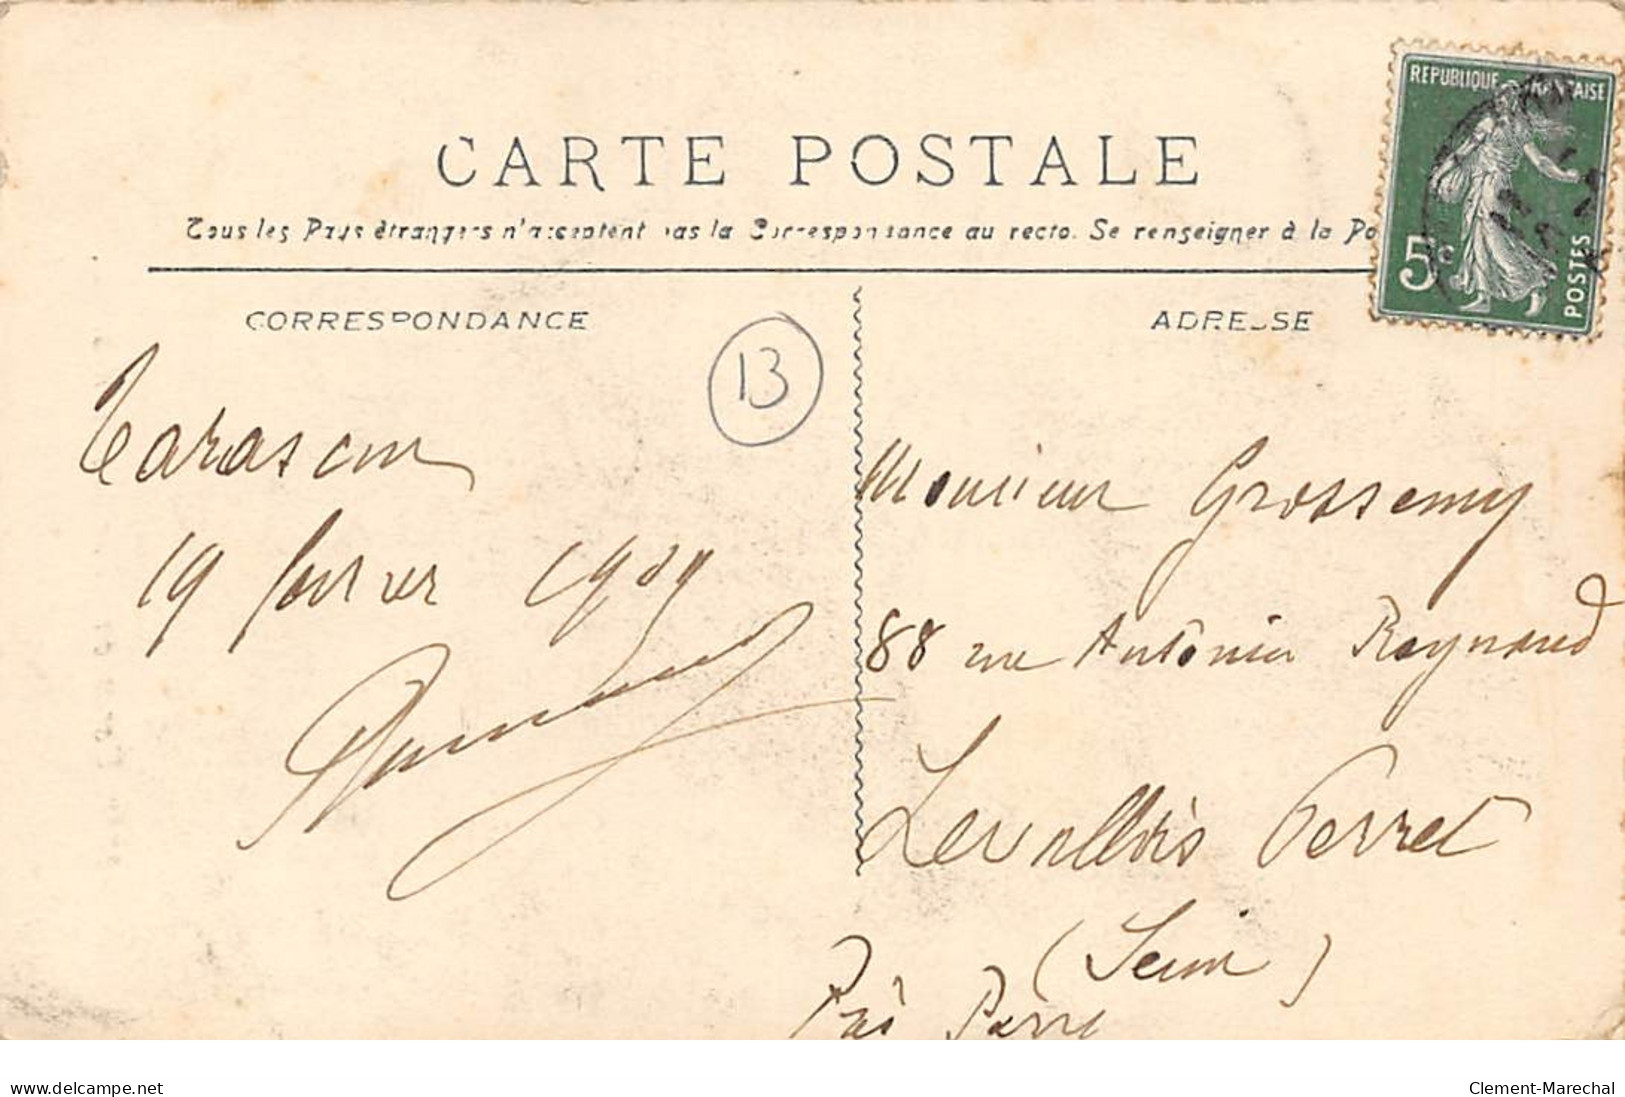 CARTE POSTALE
Tous les Pays étrangers n'acceptent pas la Correspondance au recto. Se renseigner à la Po
REPUBLIQUE FRANÇAISE
5c
POSTES
CORRESPONDANCE
ADRESSE
13
Tarascon
19 février 1909
Monsieur Grossemy
88 rue Antonin Raynaud
Levallois Perret
(Seine)
Près Paris
delcampe.net
Clement-Marechal